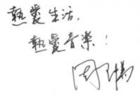 热爱生活，
热爱音乐！